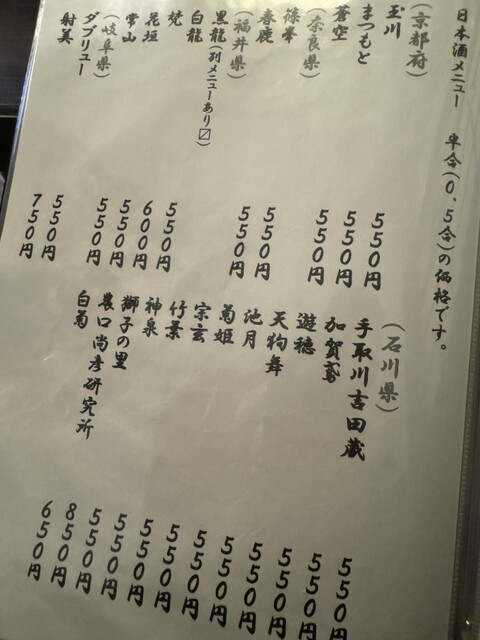 日本酒メニュー 半合(0.5合)の価格です。
(京都府)
玉川 550円
まつもと 550円
蒼空 550円
(奈良県)
篠峯 550円
春鹿 550円
(福井県)
黒龍(別メニューあり〼)
白龍 550円
梵 600円
花垣 550円
常山 550円
(岐阜県)
ダブリュー 550円
射美 750円
(石川県)
手取川吉田蔵 550円
加賀鳶 550円
遊穂 550円
天狗舞 550円
池月 550円
菊姫 550円
宗玄 550円
竹葉 550円
神泉 550円
獅子の里 550円
農口尚彦研究所 850円
白菊 650円